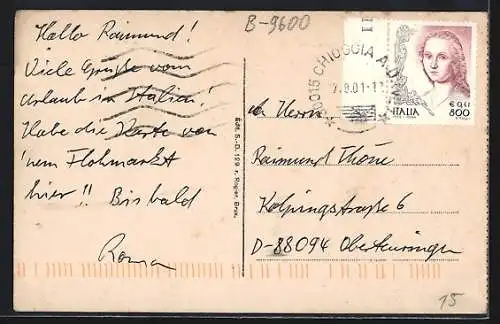 B-9600
Hallo Raimund!
Viele Grüße vom
Urlaub in Italien!
Habe die Karte von
'nem Flohmarkt
hier!! Bis bald
Édt. S.-D. 129
30015 CHIOGGIA
.8.01-1
ITALIA
€ 0,41
800
Herrn
Raimund Thöne
Kolpingstraße 6
D-88094 Oberteuringen
15